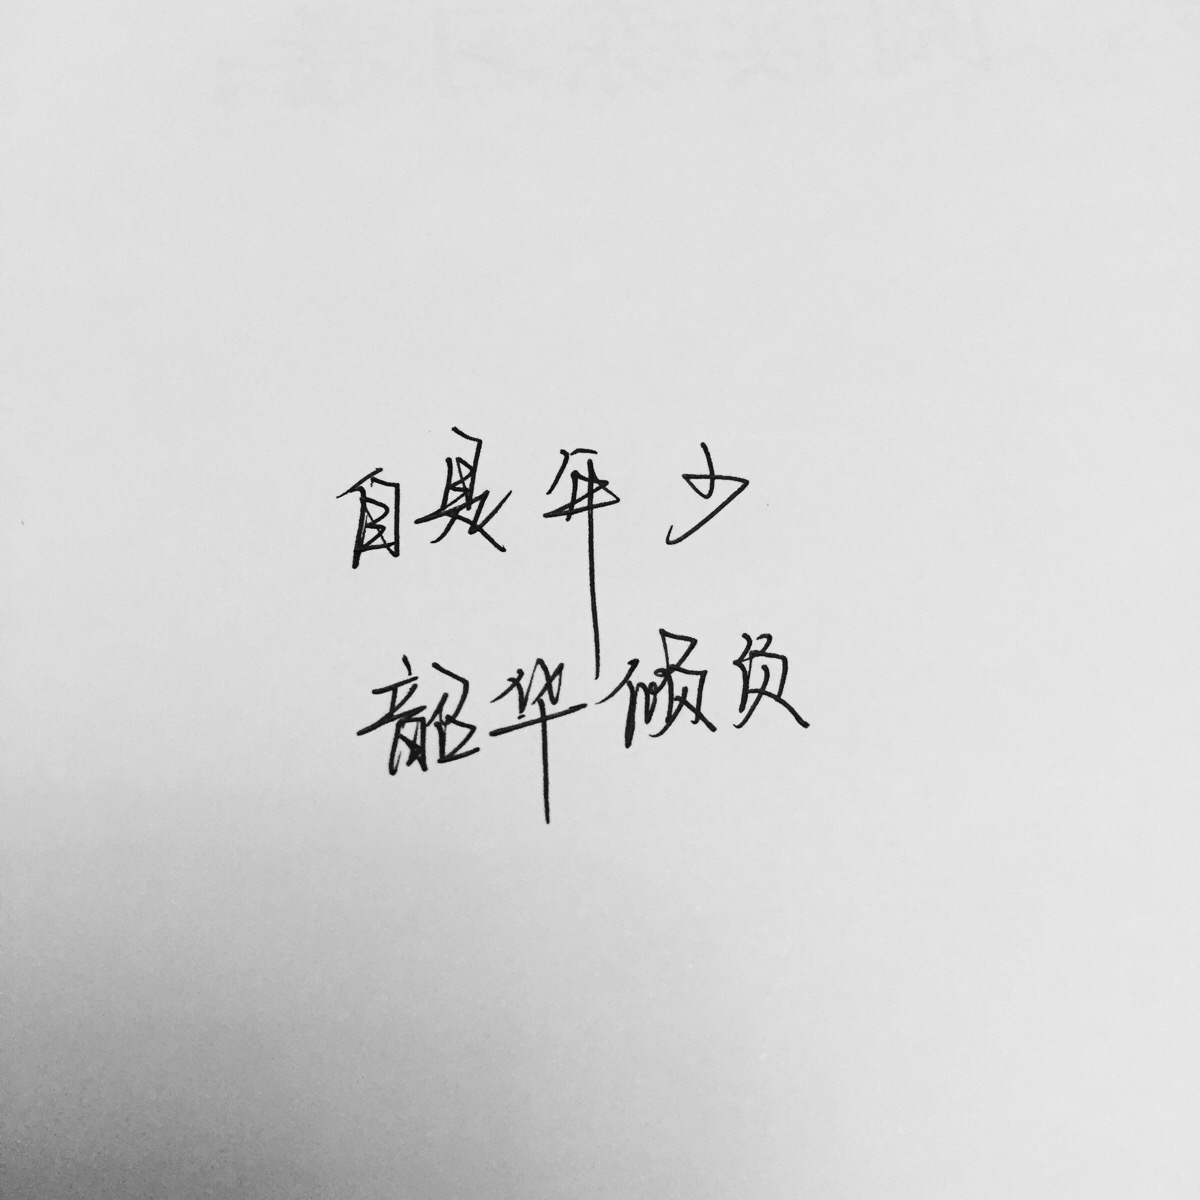 自是年少
韶华倾负